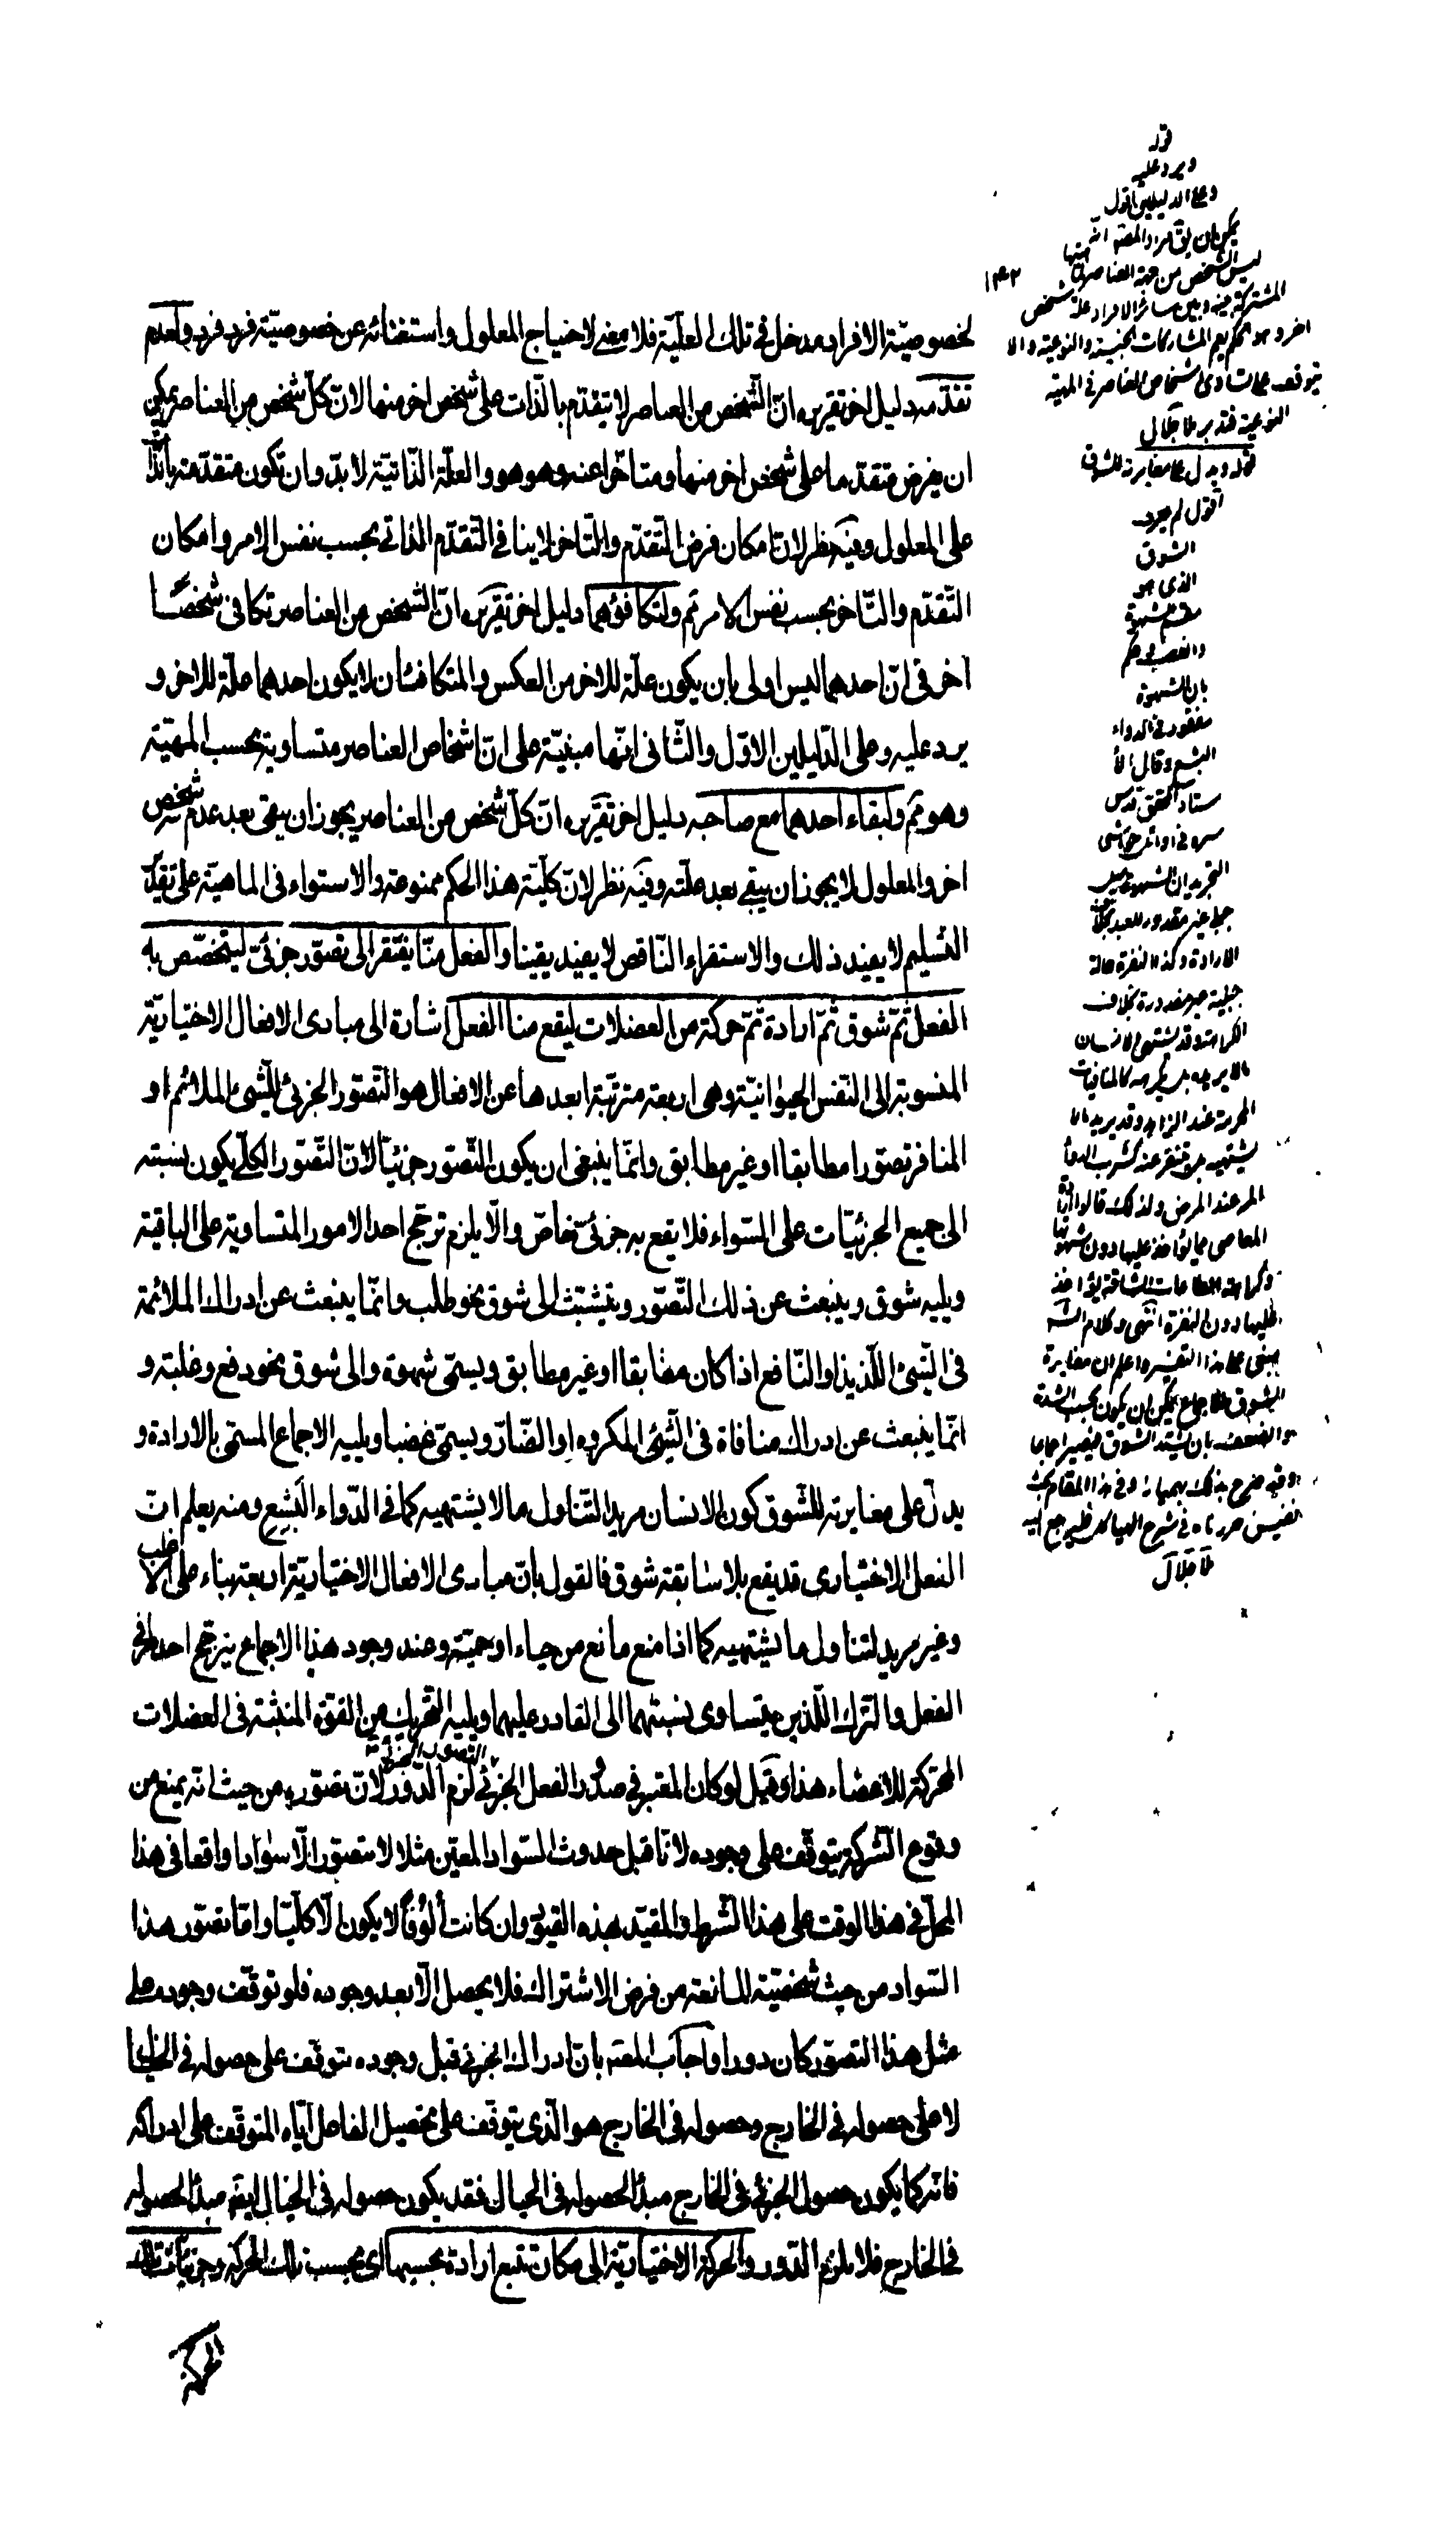 لخصوصيّة الافراد مدخل فى تلك العليّة فلا معنى لاحتياج المعلول واستغنائه عن خصوصيّة فرد فرد ولعدم
تقدّمه دليل اخر تقريره انّ الشّخص من العناصر لا يتقدّم بالذّات على شخص اخر منها لانّ كلّ شخص من العناصر يمكن
ان يفرض متقدّما على شخص اخر منها ومتاخّرا عنه وهو هو والعلّة الذّاتيّة لا بدّ وان تكون متقدّمة بالذّات
على المعلول وفيه نظر لانّ امكان فرض التّقدّم والتّاخر لا ينافى التّقدّم الذّاتى بحسب نفس الامر وامكان
التّقدّم والتّاخر بحسب نفس الامر ثم ولتكافؤهما دليل اخر تقريره انّ الشّخص من العناصر تكافى شخصًا
آخر فى انّ احدهما ليس اولى بان يكون علّة للاخر من العكس والمتكافئان لا يكون احدهما علّة للاخر و
يرد عليه وعلى الدّليلين الاوّل والثّانى انّها مبنيّة على انّ اشخاص العناصر متساوية بحسب المهيّة
وهو ثم ولبقاء احدهما مع صاحبه دليل اخر تقريره انّ كلّ شخص من العناصر يجوز ان يبقى بعد عدم شخص
اخر والمعلول لا يجوز ان يبقى بعد علّته وفيه نظر لانّ كليّة هذا الحكم ممنوعة والاستواء فى الماهيّة على تقدير
التّسليم لا يفيد ذلك والاستقراء النّاقص لا يفيد يقينا والفعل منّا يفتقر الى تصوّر جزئىّ ليتخصّص به
الفعل ثمّ شوق ثمّ ارادة ثمّ حركة من العضلات ليقع منا الفعل اشارة الى مبادى الافعال الاختياريّة
المنسوبة الى النّفس الحيوانيّة وهى اربعة مترتّبة ابعدها عن الافعال هو التّصوّر الجزئى للشّىء الملائم او
المنافر تصوّرا مطابقا او غير مطابق وانّما ينبغى ان يكون التّصوّر جزئيّا لانّ التّصوّر الكلّى يكون نسبته
الى جميع الجزئيّات على السّواء فلا يقع به جزئىّ خاصّ والّا يلزم ترجّح احد الامور المتساوية على الباقية
ويليه شوق وينبعث عن ذلك التّصوّر ويتشبّث الى شوق نحو طلب وانّما ينبعث عن ادراك الملائمة
فى الشّىء اللّذيذ او النّافع اذا كان مطابقا او غير مطابق ويسمّى شهوة والى شوق نحو دفع وغلبة و
انّما ينبعث عن ادراك منافاة فى الشّىء المكروه او الضّارّ ويسمّى غضبا ويليه الاجماع المسمّى بالارادة و
يدلّ على مغايرته للشّوق كون الانسان مريد التّناول ما لا يشتهيه كما فى الدّواء البشع ومنه يعلم انّ
الفعل الاختيارى قد يقع بلا سابقة شوق فالقول بانّ مبادى الافعال الاختياريّة اربعة بناء على الاغلب
وغير مريد لتناول ما يشتهيه كما اذا منع مانع من حياء او حميّة وعند وجود هذا الاجماع يترجّح احد طرفى
الفعل والترك اللّذين يتساوى نسبتهما الى القادر عليهما ويليه التّحريك من القوّة المنبثّة فى العضلات
المحرّكة للاعضاء هذا وقيل لو كان المعتبر فى صدور الفعل الجزئى التصوّر الجزئى لزم الدّور لانّ تصوّره من حيث انّه يمنع من
وقوع الشّركة يتوقّف على وجوده لانّا قبل حدوث السّواد المعيّن مثلا لا نتصوّر الّا سوادا واقعا فى هذا
المحلّ فى هذا الوقت على هذا الشّرط والمقيّد بهذه القيود وان كانت ألوفًا لا يكون الّا كلّيّا وامّا تصوّر هذا
السّواد من حيث شخصيّته المانعة من فرض الاشتراك فلا يحصل الّا بعد وجوده فلو توقّف وجوده على
مثل هذا التصوّر كان دورا واجاب المصه بانّ ادراك الجزئى قبل وجوده يتوقّف على حصوله فى الخيال
لا على حصوله فى الخارج وحصوله فى الخارج هو الّذى يتوقّف على تحصيل الفاعل ايّاه المتوقّف على ادراكه
فانّه كما يكون حصول الجزئى فى الخارج مبدأ لحصوله فى الخيال فقد يكون حصوله فى الخيال ايضا مبدأ لحصوله
فى الخارج فلا يلزم الدّور والحركة الاختياريّة الى مكان تتبع ارادة بحسبها اى بحسب تلك الحركة وجزئيّات تلك
الحركة
١٤٢
قوله
ويرد عليه
وعلى الدليلين اقول
يمكن ان يقال مراد المصه انّه
ليس الشخص من جهة العناصر
المشتركة بينه وبين سائر الافراد علة شخص
اخر وهو حكم يعم المشاركات الجنسية والنوعية والا
يتوقف على تساوى اشخاص العناصر فى المهية
النوعية فتدبر
قوله ويدل على مغايرته للشوق
اقول لم يرد
الشوق
الذى هو
بان الشهوة
مفقود فى الدواء
البشع وقال الا
ستاد المحقق قدس
سره فى اوائل حواشى
التجريد ان الشهوة ميل
جبلى غير مقدور للعبد بخلاف
الارادة وكذا النفرة حالة
جبلية غير مقدورة بخلاف
الكراهة وقد يشتهى الانسان
ما لا يريده بل يكرهه
المحرمة عند الزاهد وقد يريد ما لا
يشتهيه بل يتنفر عنه كشرب الدواء
المر عند المرض ولذلك قالوا ارادة
المعاصى مما يؤاخذ عليها دون شهوتها
وكراهة الطاعات الشاقة يؤاخذ
عليها دون النفرة انتهى وكلام الشه
مبنى على هذا التفسير واعلم ان مغايرة
الشوق للاجماع يمكن ان يكون بحسب الشدة
والضعف بان يشتد الشوق فيصير اجماعا
وقد صرح بذلك بهمنيار وفى هذا المقام بحث
نفيس حررناه فى شرح الهياكل فليرجع اليه